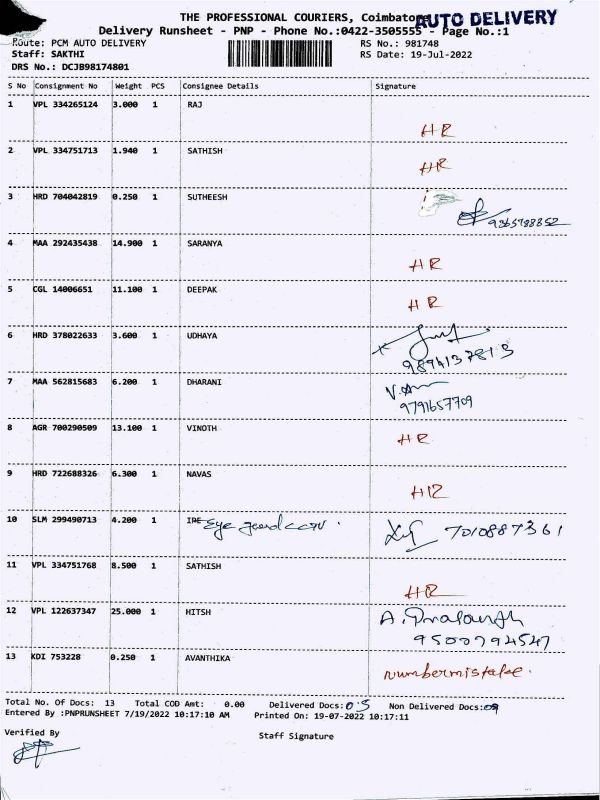 THE PROFESSIONAL COURIERS, Coimbatore
AUTO DELIVERY
Delivery Runsheet - PNP - Phone No.:0422-3505555 - Page No.:1
Route: PCM AUTO DELIVERY
RS No.: 981748
Staff: SAKTHI
RS Date: 19-Jul-2022
DRS No.: DCJB98174801
S No Consignment No Weight PCS Consignee Details Signature
1 VPL 334265124 3.000 1 RAJ
HR
2 VPL 334751713 1.940 1 SATHISH
HR
3 HRD 704042819 0.250 1 SUTHEESH
9365788852
4 MAA 292435438 14.900 1 SARANYA
HR
5 CGL 14006651 11.100 1 DEEPAK
HR
6 HRD 378022633 3.600 1 UDHAYA
9894137813
7 MAA 562815683 6.200 1 DHARANI
9791657709
8 AGR 700290509 13.100 1 VINOTH
HR
9 HRD 722688326 6.300 1 NAVAS
HR
10 SLM 299490713 4.200 1 Eye 7010887361
11 VPL 334751768 8.500 1 SATHISH
HR
12 VPL 122637347 25.000 1 HITSH
9500794547
13 KDI 753228 0.250 1 AVANTHIKA
number mistake.
Total No. Of Docs: 13 Total COD Amt: 0.00 Delivered Docs: 05 Non Delivered Docs:
Entered By :PNPRUNSHEET 7/19/2022 10:17:10 AM Printed On: 19-07-2022 10:17:11
Verified By
Staff Signature